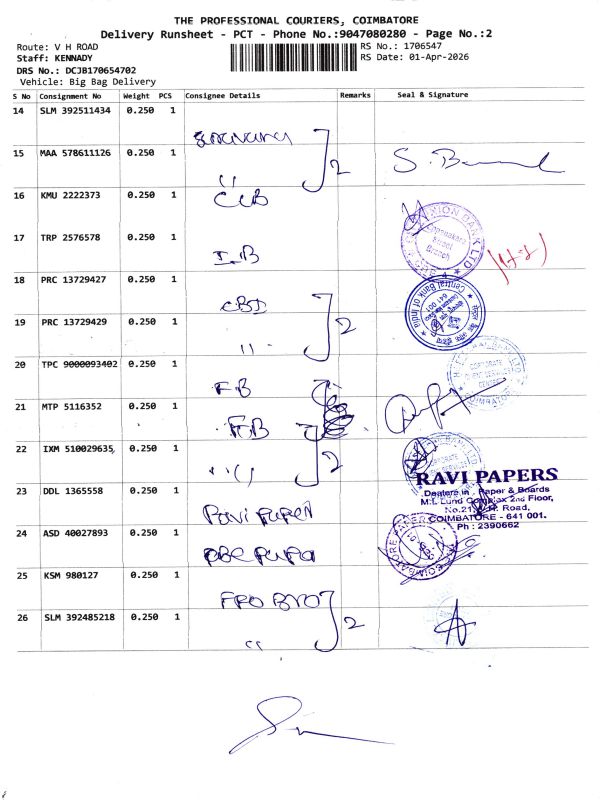 THE PROFESSIONAL COURIERS, COIMBATORE
Delivery Runsheet - PCT - Phone No.:9047080280 - Page No.:2
Route: V H ROAD
RS No.: 1706547
Staff: KENNADY
RS Date: 01-Apr-2026
DRS No.: DCJB170654702
Vehicle: Big Bag Delivery
S No Consignment No Weight PCS Consignee Details Remarks Seal & Signature
14 SLM 392511434 0.250 1
15 MAA 578611126 0.250 1 2
16 KMU 2222373 0.250 1 CUB
17 TRP 2576578 0.250 1 I_B
18 PRC 13729427 0.250 1 CBI
19 PRC 13729429 0.250 1 " 2
20 TPC 9000093402 0.250 1 FB
21 MTP 5116352 0.250 1 FB
22 IXM 510029635 0.250 1 " 2
RAVI PAPERS
Dealers in : Paper & Boards
2nd Floor,
Road,
COIMBATORE - 641 001.
Ph : 2390662
23 DDL 1365558 0.250 1 Ravi Paper
24 ASD 40027893 0.250 1
25 KSM 980127 0.250 1
26 SLM 392485218 0.250 1 " 2
Central Bank of India